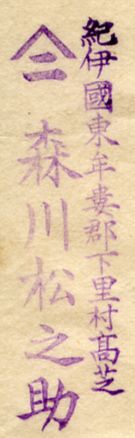 紀伊國東牟婁郡下里村高芝
𠆢二 森川松之助